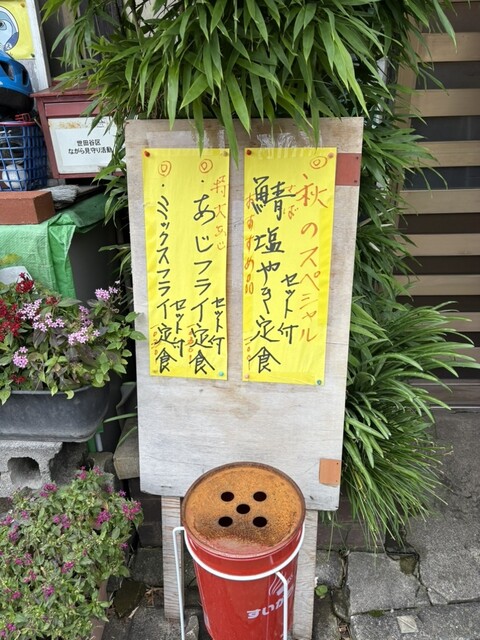 世田谷区
ながら見守り活動
◎秋のスペシャル
さば
鯖塩やき定食
セット付
おすすめ品
特大あじ
◎・あじフライ定食
セット付
◎・ミックスフライ定食
セット付
すいがら